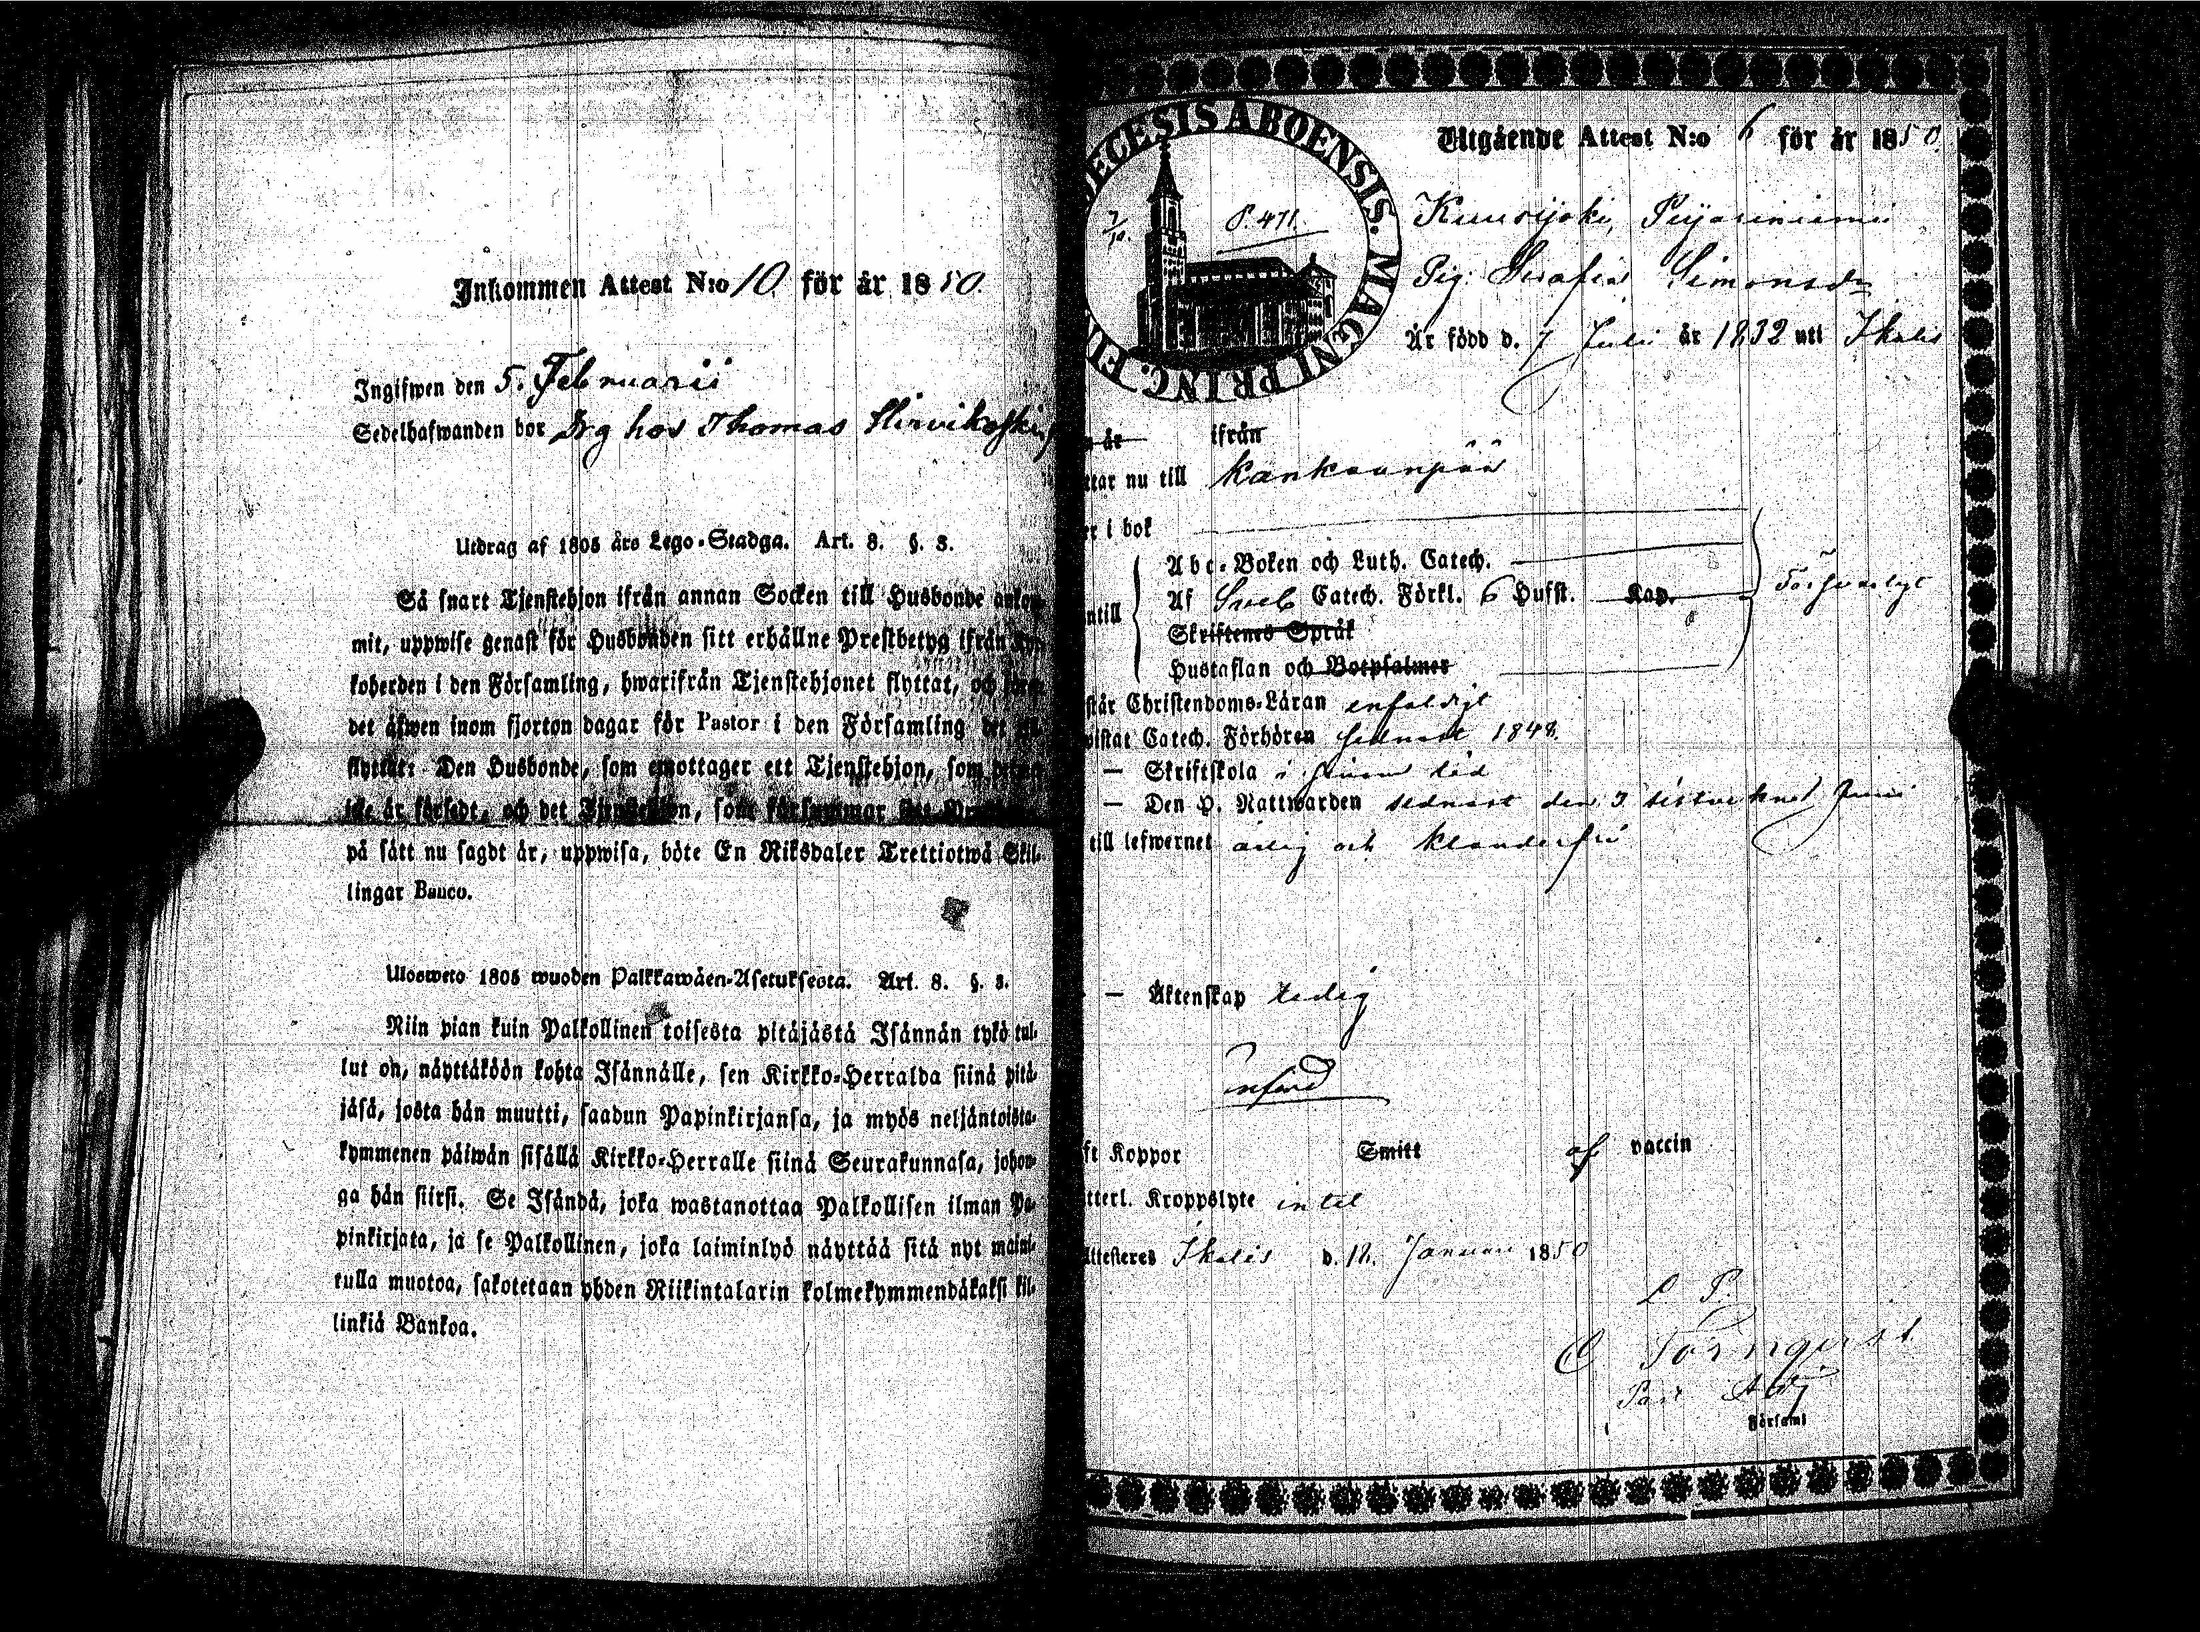 Inkommen Attest N:o 10. för år 1850.
Ingifwen den 5. Februarii
Sedelhafwanden bor Drg hos Thomas Hirvikoski
Utdrag af 1805 års Lego-Stadga. Art. 8. §. 3.
Så snart Tjenstehjon ifrån annan Socken till Husbonde ankom-
mit, uppwise genast för Husbonden sitt erhållne Prestbetyg ifrån
koherden i den Församling, hwarifrån Tjenstehjonet flyttat, och
det äfwen inom fjorton dagar för Pastor i den Församling det
flyttar: Den Husbonde, som emottager ett Tjenstehjon, som
icke är försedt, och det Tjenstehjon, som försummar
på sätt nu sagdt är, uppwisa, böte En Riksdaler Trettiotwå Skil-
lingar Banco.
Ulosweto 1805 wuoden Palkkawäen-Asetuksesta. Art. 8. §. 3.
Niin pian kuin Palkollinen toisesta pitäjästä Isännän tykö tul-
lut on, näyttäköön kohta Isännälle, sen Kirkko-Herralda siinä pitä-
jäsä, josta hän muutti, saadun Papinkirjansa, ja myös neljäntoista-
kymmenen päiwän sisällä Kirkko-Herralle siinä Seurakunnasa, johon-
ga hän siirsi. Se Isändä, joka wastanottaa Palkollisen ilman Pa-
pinkirjata, ja se Palkollinen, joka laiminlyö näyttää sitä nyt maini-
tulla muotoa, sakotetaan yhden Riikintalarin kolmekymmendäkaksi kil-
linkiä Bankoa.
DECESIS ABOENSIS. MAGNI PRINC. FIN
7/10. P. 471.
Utgående Attest N:o 6 för år 1850.
Pig. Serafia Simonsdr
Är född d. 7 Julii år 1832 uti Ikalis
år ifrån
ttar nu till Kankaanpää
er i bok
Abc-Boken och Luth. Catech.
Af Sveb Catech. Förkl. 6 Hufst. Kap. Försvarligt
ntill
Skriftenes Språk
Hustaflan och Botpsalmer
står Christendoms-Läran enfaldigt
wistat Catech. Förhören sednast 1848.
— Skriftskola i sinom tid
— Den H. Nattwarden sednast den 3 sistvekne Junii
till lefwernet ärlig och klanderfri
— Äktenskap ledig
ft Koppor Smitt af vaccin
tterl. Kroppslyte intet
Attesteres Ikalis d. 12. Januari 1850
L P.
C Törnqvist
Past Adj
Församl